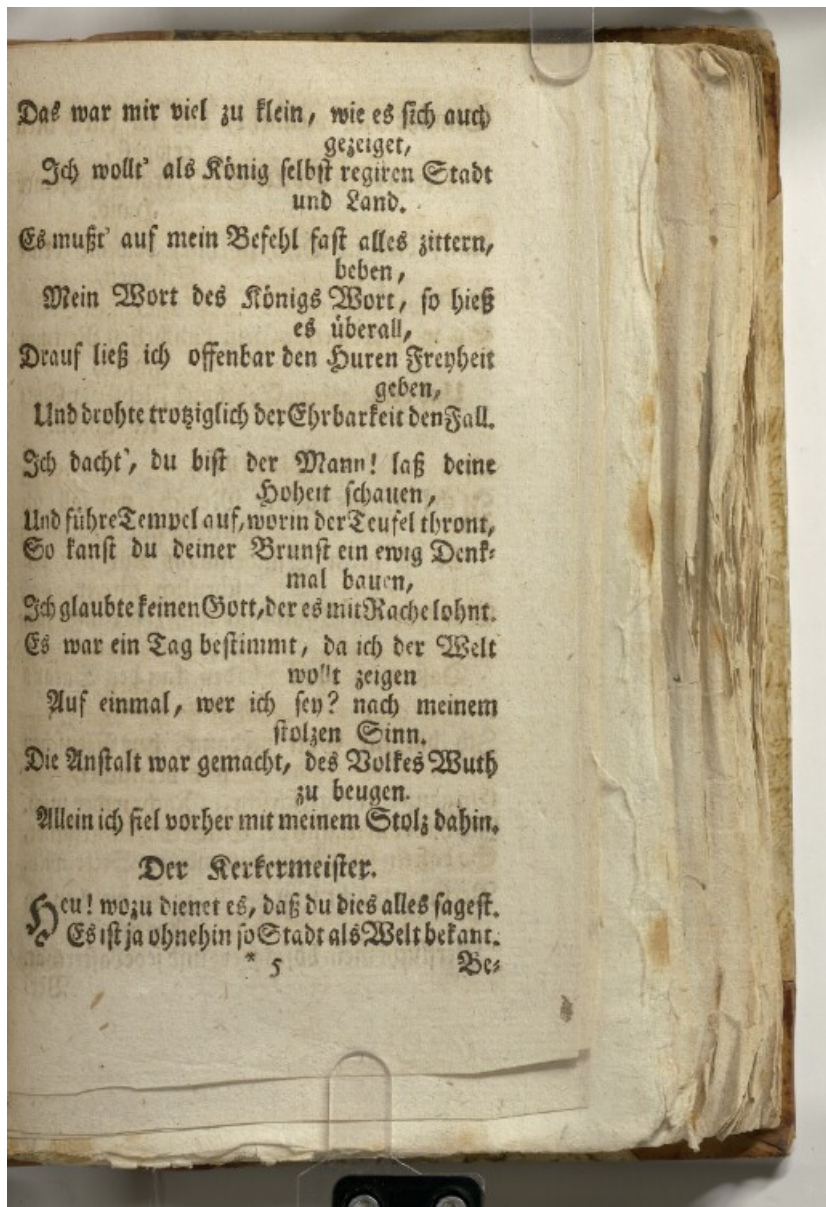 Das war mir viel zu klein, wie es sich auch
gezeiget,
Ich wollt' als König selbst regiren Stadt
und Land.
Es mußt' auf mein Befehl fast alles zittern,
beben,
Mein Wort des Königs Wort, so hieß
es überall,
Drauf ließ ich offenbar den Huren Freyheit
geben,
Und drohte trotziglich der Ehrbarkeit den Fall.
Ich dacht', du bist der Mann! laß deine
Hoheit schauen,
Und führe Tempel auf, worin der Teufel thront,
So kanst du deiner Brunst ein ewig Denk-
mal bauen,
Ich glaubte keinen Gott, der es mit Rache lohnt.
Es war ein Tag bestimmt, da ich der Welt
wollt zeigen
Auf einmal, wer ich sey? nach meinem
stolzen Sinn.
Die Anstalt war gemacht, des Volkes Wuth
zu beugen.
Allein ich fiel vorher mit meinem Stolz dahin.
Der Kerkermeister.
Heu! wozu dienet es, daß du dies alles sagest.
Es ist ja ohnehin so Stadt als Welt bekant.
* 5 Be-